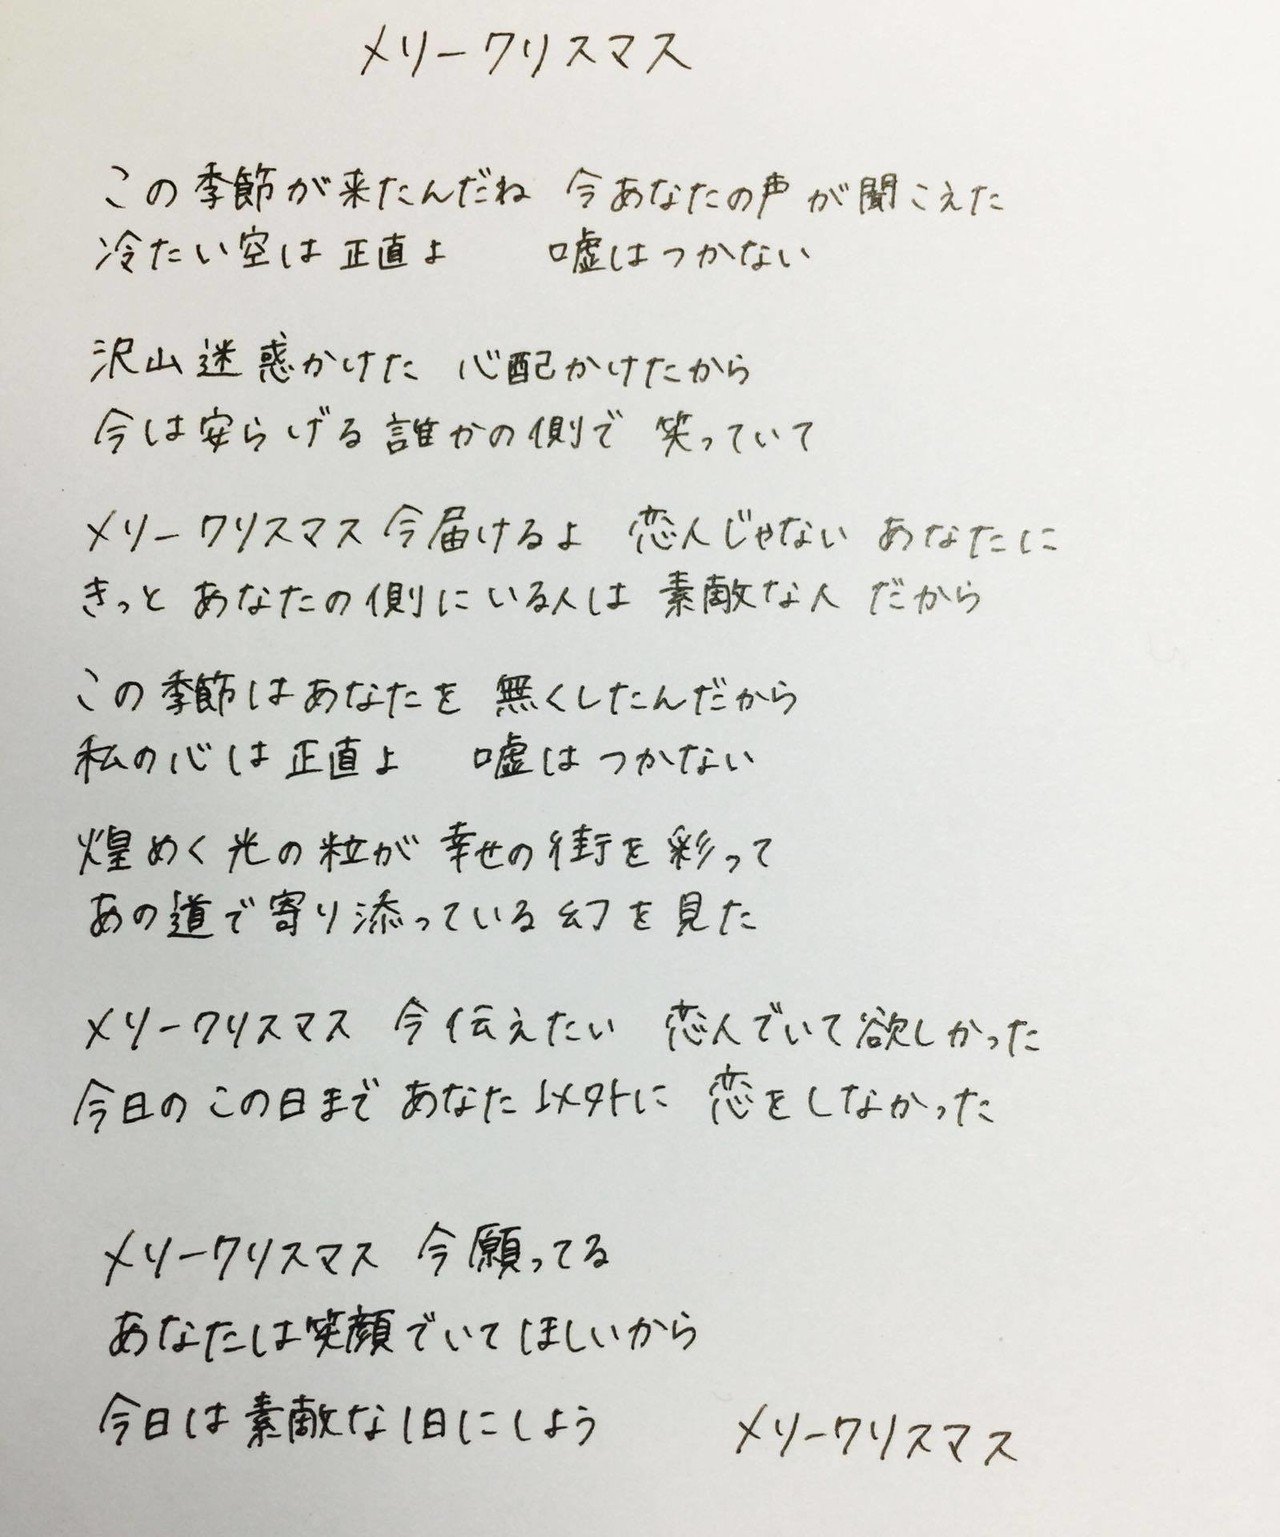 メリークリスマス
この季節が来たんだね 今あなたの声が聞こえた
冷たい空は正直よ 嘘はつかない
沢山迷惑かけた 心配かけたから
今は安らげる誰かの側で 笑っていて
メリークリスマス今届けるよ 恋人じゃない あなたに
きっと あなたの側にいる人は 素敵な人 だから
この季節はあなたを 無くしたんだから
私の心は正直よ 嘘は つかない
煌めく光の粒が 幸せの街を彩って
あの道で寄り添っている幻を見た
メリークリスマス 今伝えたい 恋人でいて欲しかった
今日のこの日まで あなた以外に 恋をしなかった
メリークリスマス 今願ってる
あなたは笑顔でいてほしいから
今日は素敵な1日にしよう メリークリスマス